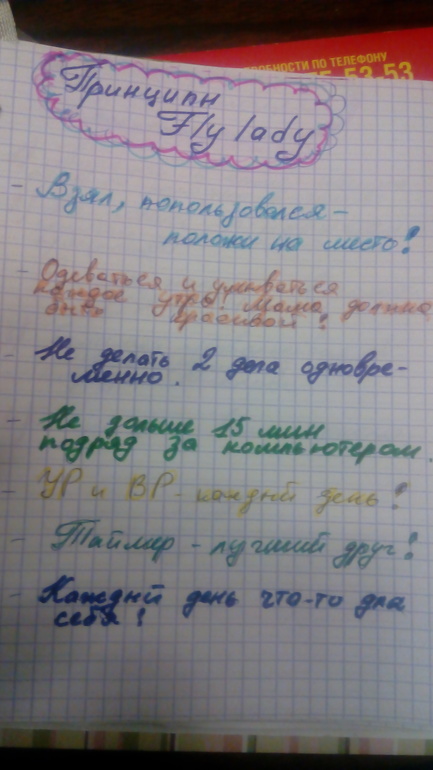 ПОДРОБНОСТИ ПО ТЕЛЕФОНУ
53-53
Принципы
Fly lady
- Взял, попользовался -
положи на место!
- Одеваться и умываться
каждое утро. Мама должна
быть красивой!
- Не делать 2 дела одновре-
менно.
- Не дольше 15 мин
подряд за компьютером.
- УР и ВР - каждый день!
- Таймер - лучший друг!
- Каждый день что-то для
себя!